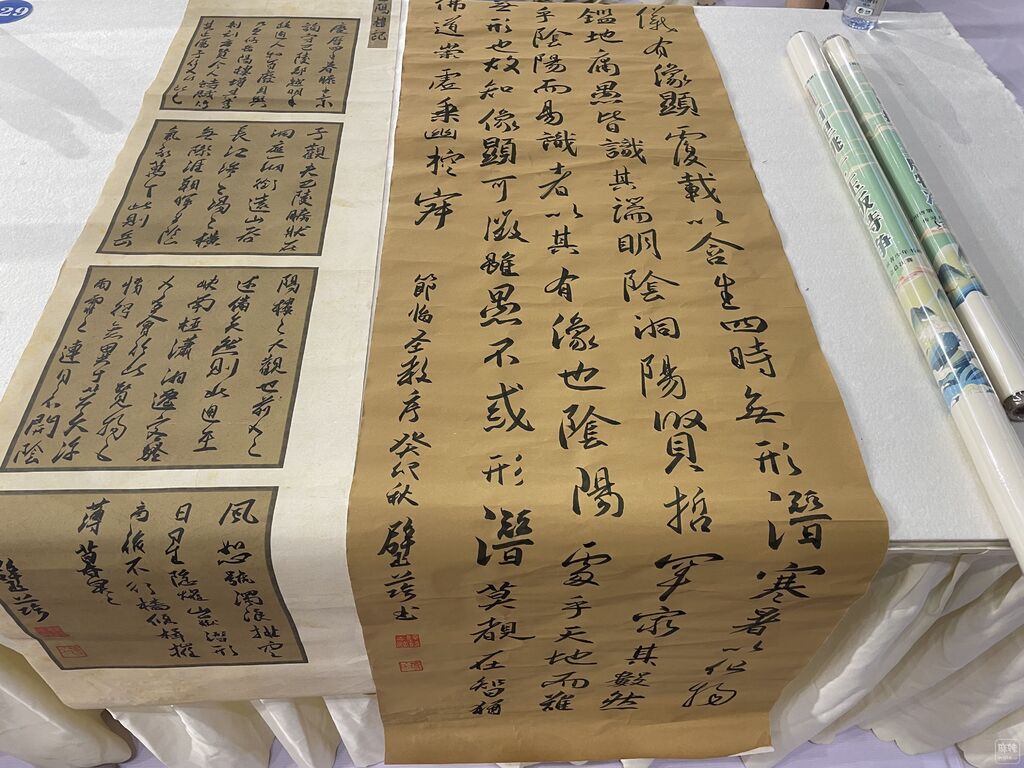 儀有像顯覆載以含生四時無形潛寒暑以化物
鑑地庸愚皆識其端明陰洞陽賢哲罕窮其數然
乎陰陽而易識者以其有像也陰陽處乎天地而難
無形也故知像顯可徵雖愚不惑形潛莫覩在智猶
佛道崇虛乘幽控寂
節臨圣教序癸卯秋
陽樓記
慶曆四年春滕子京
謫守巴陵郡越明年
政通人和百廢具興
乃重修岳陽樓增其舊
制刻唐賢今人詩賦於
其上屬予作文以記之
予觀夫巴陵勝狀在
洞庭一湖銜遠山吞
長江浩々湯々橫
無際涯朝暉夕陰
氣象萬千此則岳
陽樓之大觀也前人之
述備矣然則北通巫
峽南極瀟湘遷客騷
人多會於此覽物之
情得無異乎若夫淫
雨霏々連月不開陰
風怒號濁浪排空
日星隱耀山岳潛形
商旅不行檣傾楫摧
薄暮冥々
29